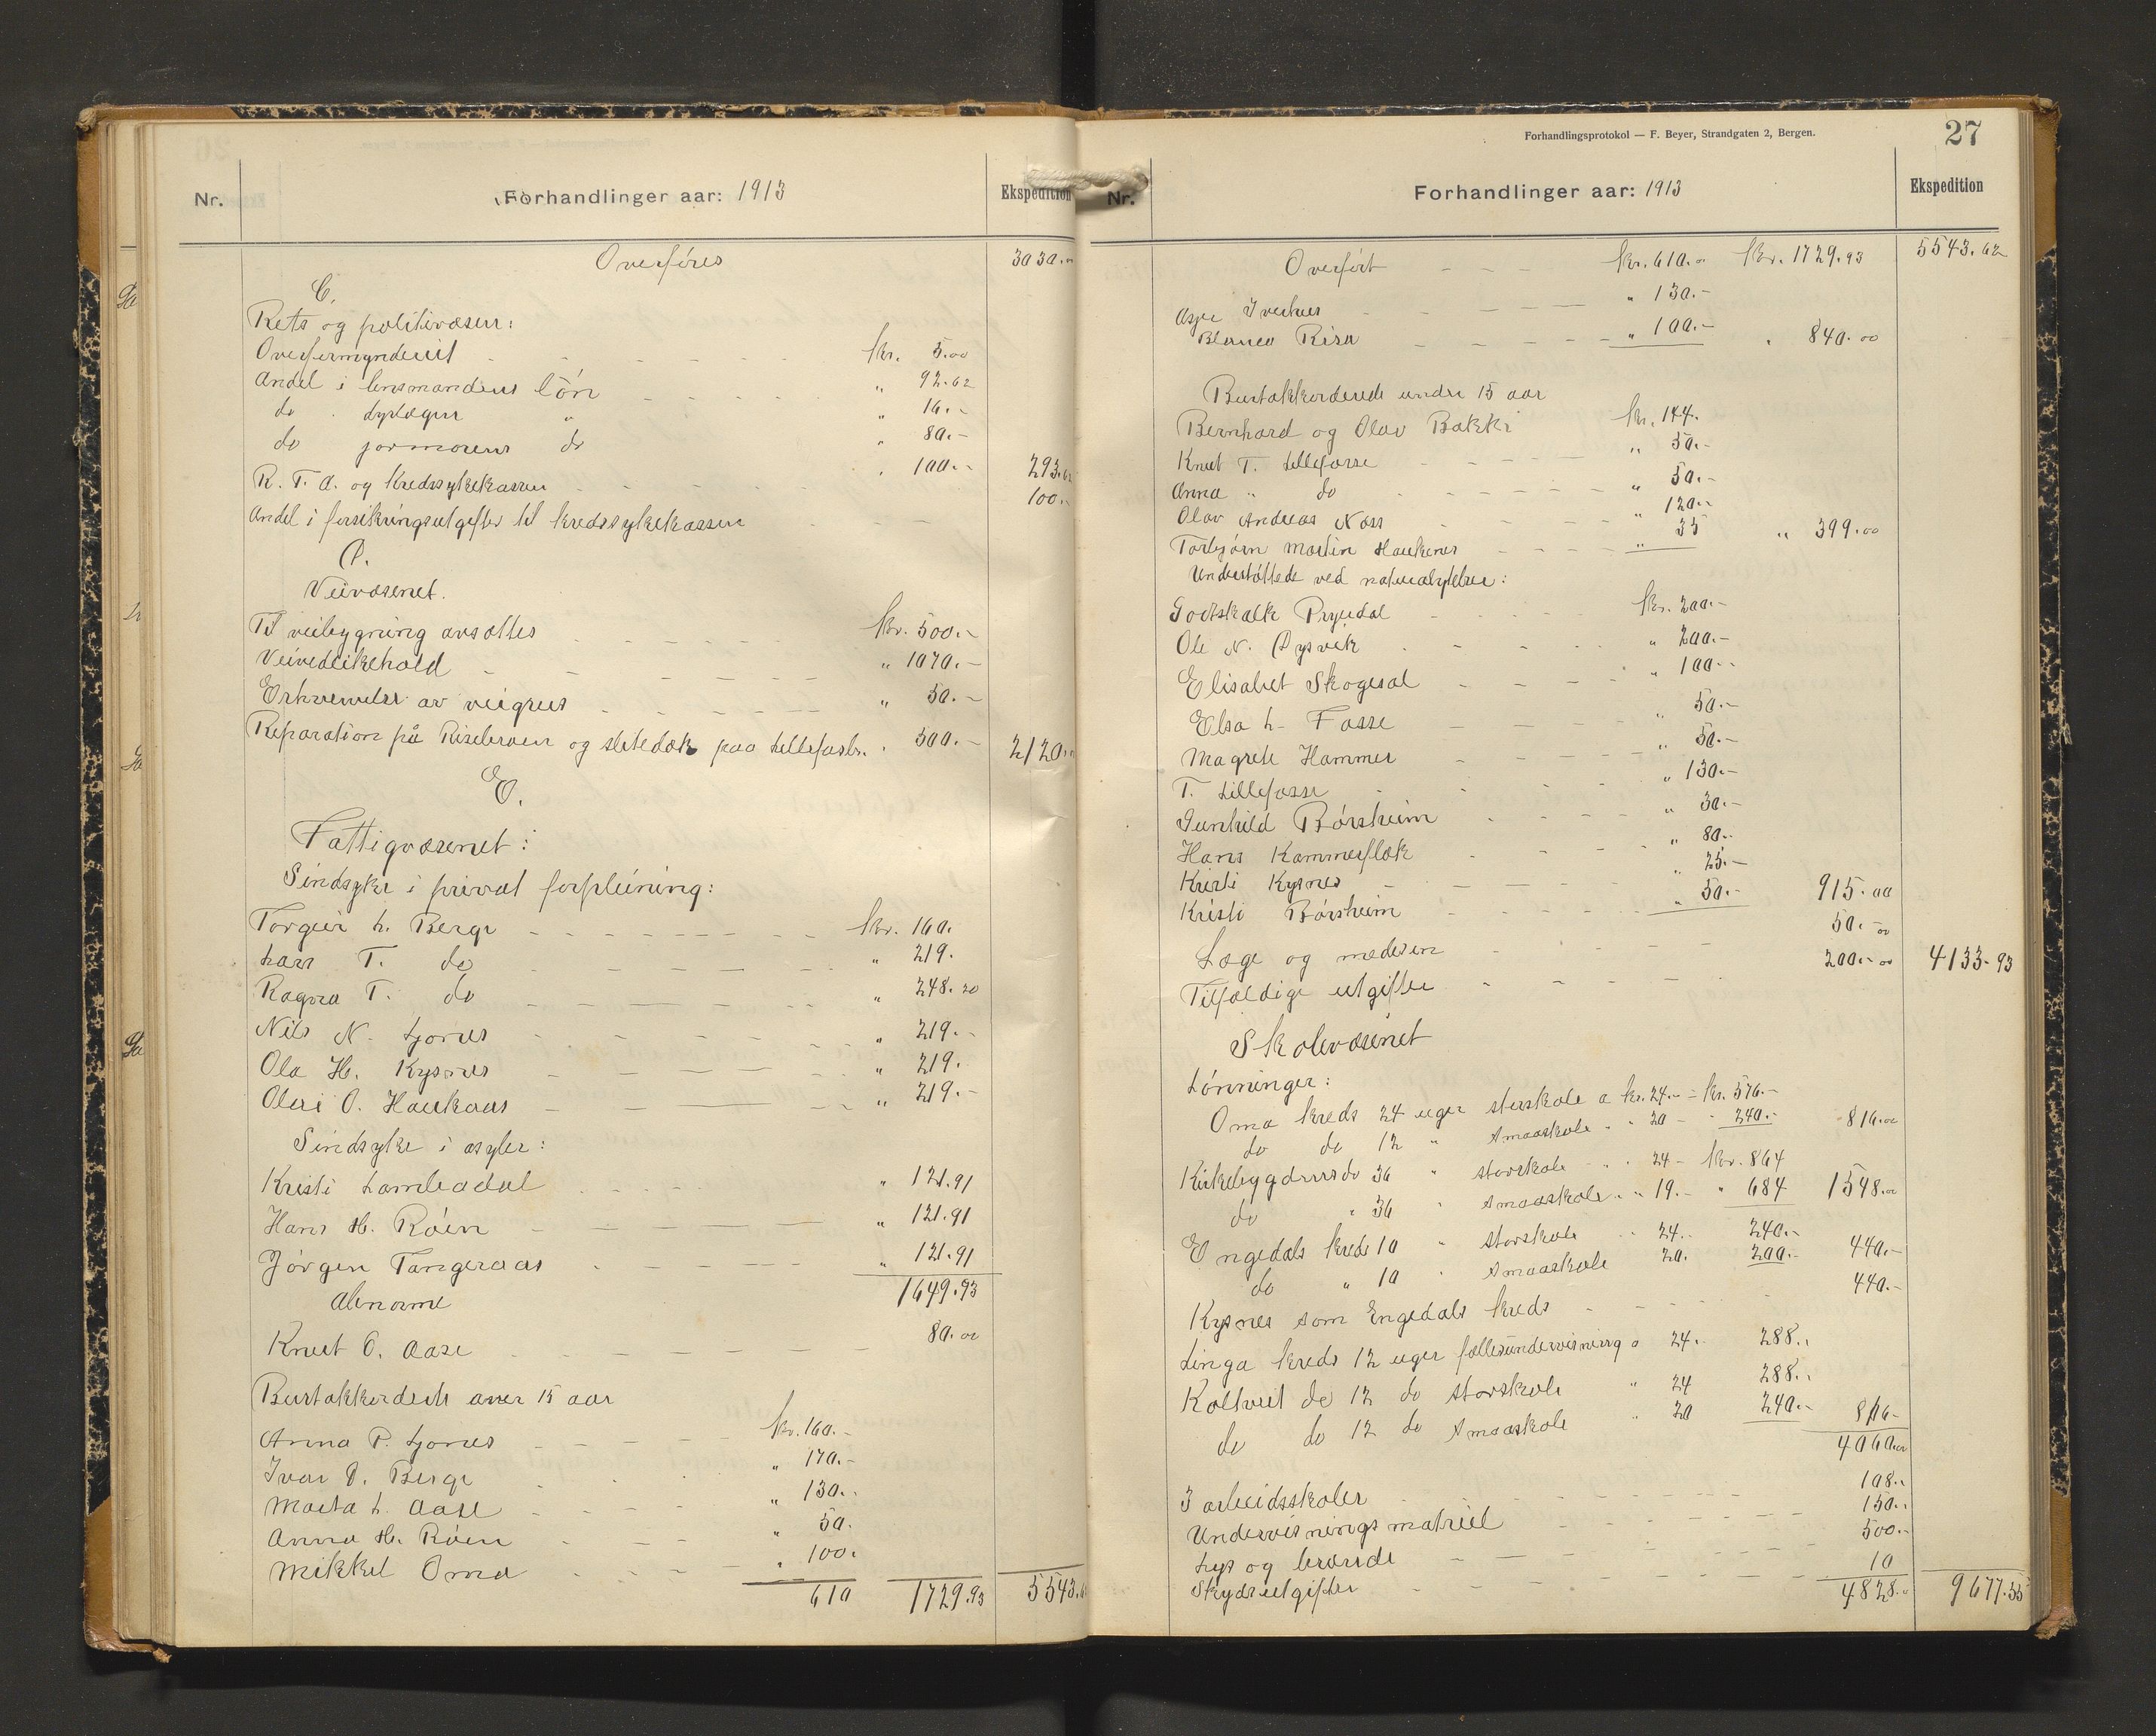 Nr.
Forhandlinger aar: 1913
Ekspedition
Overføres 3030.00
C.
Rets og politivæsen:
Overformynderiet kr. 5.00
Andel i lensmandens løn " 92.62
do . dyrlægens " " 16.-
do jormorens do " 80.-
R. T. A. og Kredssykekassen " 100.- 293.62
Andel i forsikringsutgifter til kredssykekassen 100.-
D.
Veivæsenet.
Til veibygning avsættes kr. 500.-
Veivedlikehold " 1070.-
Erhvervelse av veigrus " 50.-
Reparation på Risebroen og slitedæk paa Lillefosbr. " 500.- 2120.00
E.
Fattigvæsenet:
Sindsyke i privat forpleining:
Torgeir L. Berge kr. 160.
Lars T. do " 219.
Ragna T. do " 248.20
Nils N. Ljones " 219.-
Ola H. Kysnes " 219.
Olai O. Haukaas " 219.-
Sindsyke i asyler:
Kristi Lambadal " 121.91
Hans H. Röen " 121.91
Jörgen Tangeraas " 121.91
Abnorme 1649.93
Knut O. Aase 80.00
Bortakkorderte over 15 aar
Anna P. Ljones kr. 160.-
Ivar O. Berge " 170.-
Marta L. Aase " 130.-
Anna H. Röen " 50.
Mikkel Oma " 100.
610 1729.93 5543.62
Forhandlingsprotokol — F. Beyer, Strandgaten 2, Bergen.
27
Nr.
Forhandlinger aar: 1913
Ekspedition
Overført kr. 610.00 kr. 1729.93 5543.62
Iverhus " 130.-
Risa " 100.- " 840.00
Bortakkorderede under 15 aar
Bernhard og Olav Bakke kr. 144.
Knut T. Lillefosse " 50.-
Anna " do " 50.-
Olav Andreas Næss " 120.-
Torbjørn Martin Haukenes " 35 " 399.00
Understøttede ved naturalytelser:
Godtskalk kr. 200.-
Ole N. Dysvik " 200.-
Elisabet Skogesal " 100.-
Elsa L. Fosse " 50.-
Magrete Hammer " 50.-
T. Lillefosse " 130.-
Gunhild Börsheim " 30.-
Hans Kammerflok " 80.-
Kristi Kysnes " 25.-
Kristi Börsheim " 50.- 915.00
Læge og medesin 50.00
Tilfældige utgifter 200.00 4133.93
Skolevæsenet
Lønninger:
Oma kreds 24 uger storskole a kr. 24.- = kr. 576.-
do do 12 " smaaskole " " 20 - 240.- 816.00
Kirkebygdens do 36 " storskole " " 24 - kr. 864
do " 36 " smaaskole " " 19.- " 684 1548.00
Engedals kreds 10 " storskole " 24.- 240.-
do " 10 " smaaskole 20. 200.- 440.-
Kysnes som Engedals kreds 440.-
Linga kreds 12 uger fællesundervisning a 24.- 288.-
Koltveit do 12 do storskole " 24 288.-
do do 12 do smaaskole " 20 240.- 816-
4060.00
3 arbeidsskoler 108.-
Undervisningsmatriel 150.-
Lys og brænde 500.-
Skydsutgifter 10
4828.00 9677.55